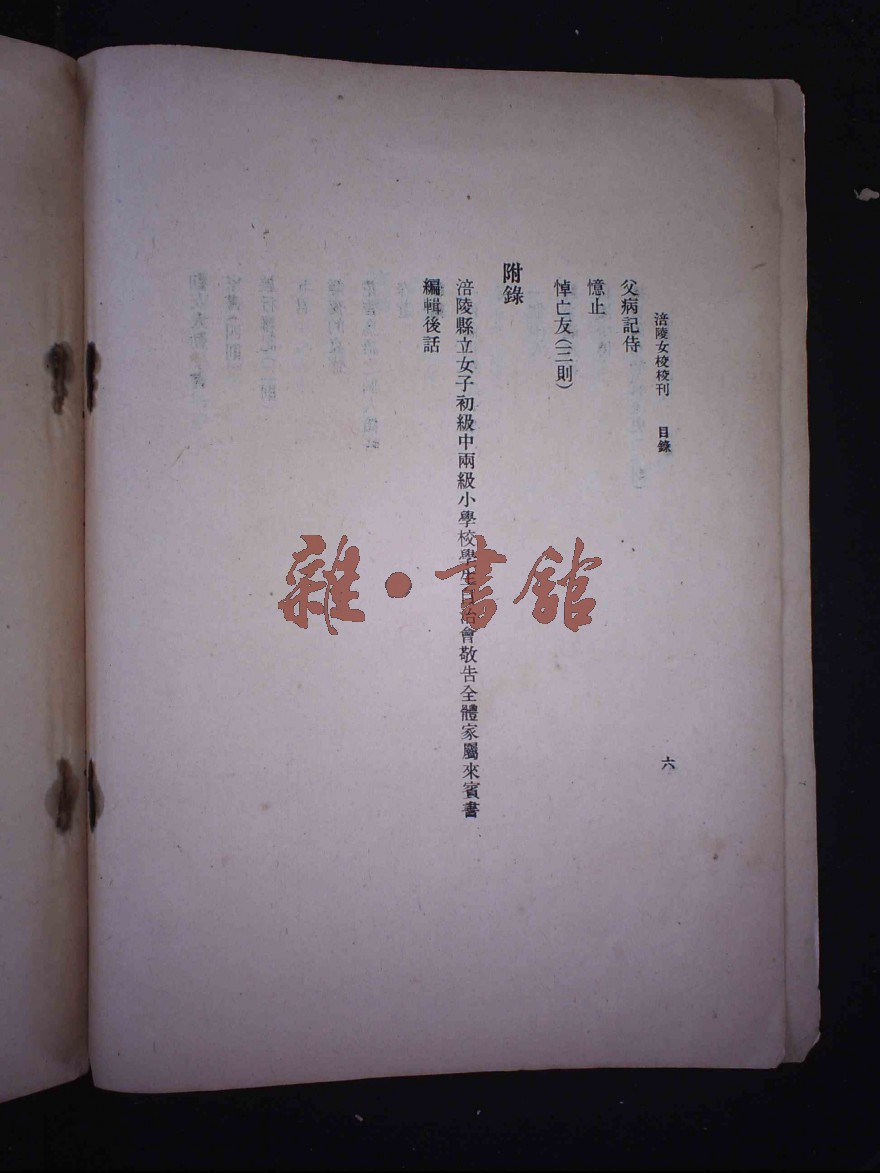 涪陵女校校刊　目錄　六
父病記侍
憶止
悼亡友（三則）
附錄
涪陵縣立女子初級中兩級小學校學生自治會敬告全體家屬來賓書
編輯後話
雜·書館